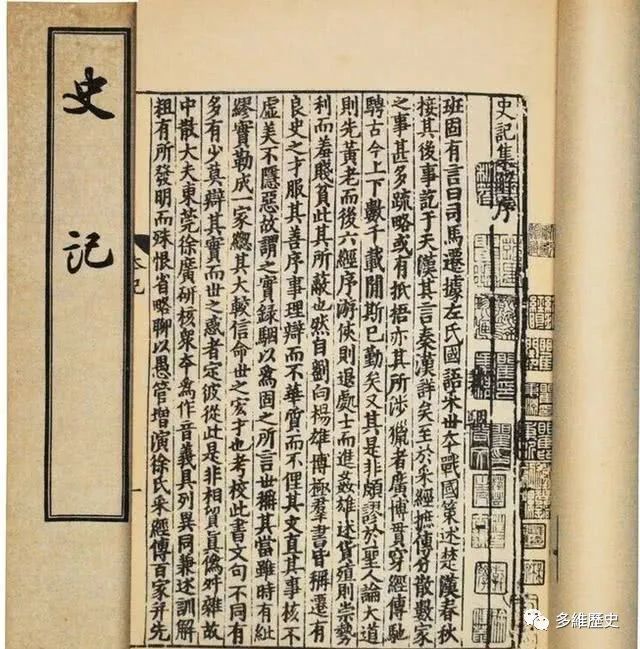 史記集解序
班固有言曰司馬遷據左氏國語采世本戰國策述楚漢春秋
接其後事訖于天漢其言秦漢詳矣至於采經摭傳分散數家
之事甚多疏略或有抵梧亦其所涉獵者廣博貫穿經傳馳
騁古今上下數千載閒斯已勤矣又其是非頗謬於聖人論大道
則先黃老而後六經序游俠則退處士而進姦雄述貨殖則崇勢
利而羞賤貧此其所蔽也然自劉向楊雄博極羣書皆稱遷有
良史之才服其善序事理辯而不華質而不俚其文直其事核不
虛美不隱惡故謂之實録駰以爲固之所言世稱其當雖時有紕
繆實勒成一家緫其大較信命世之宏才也考校此書文句不同有
多有少莫辯其實而世之惑者定彼從此是非相貿真僞舛雜故
中散大夫東莞徐廣研核衆本爲作音義具列異同兼述訓解
粗有所發明而殊恨省略聊以愚管增演徐氏采經傳百家并先
史記
多維歷史